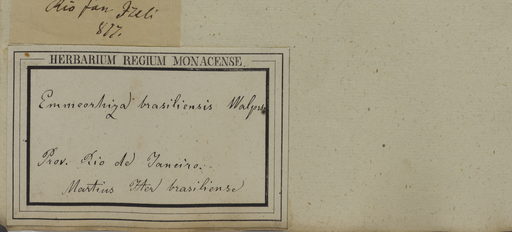 Rio San Feli
877.
HERBARIUM REGIUM MONACENSE
Emmeorhiza brasiliensis Walprs
Prov. Rio de Janeiro.
Martius Iter brasiliense